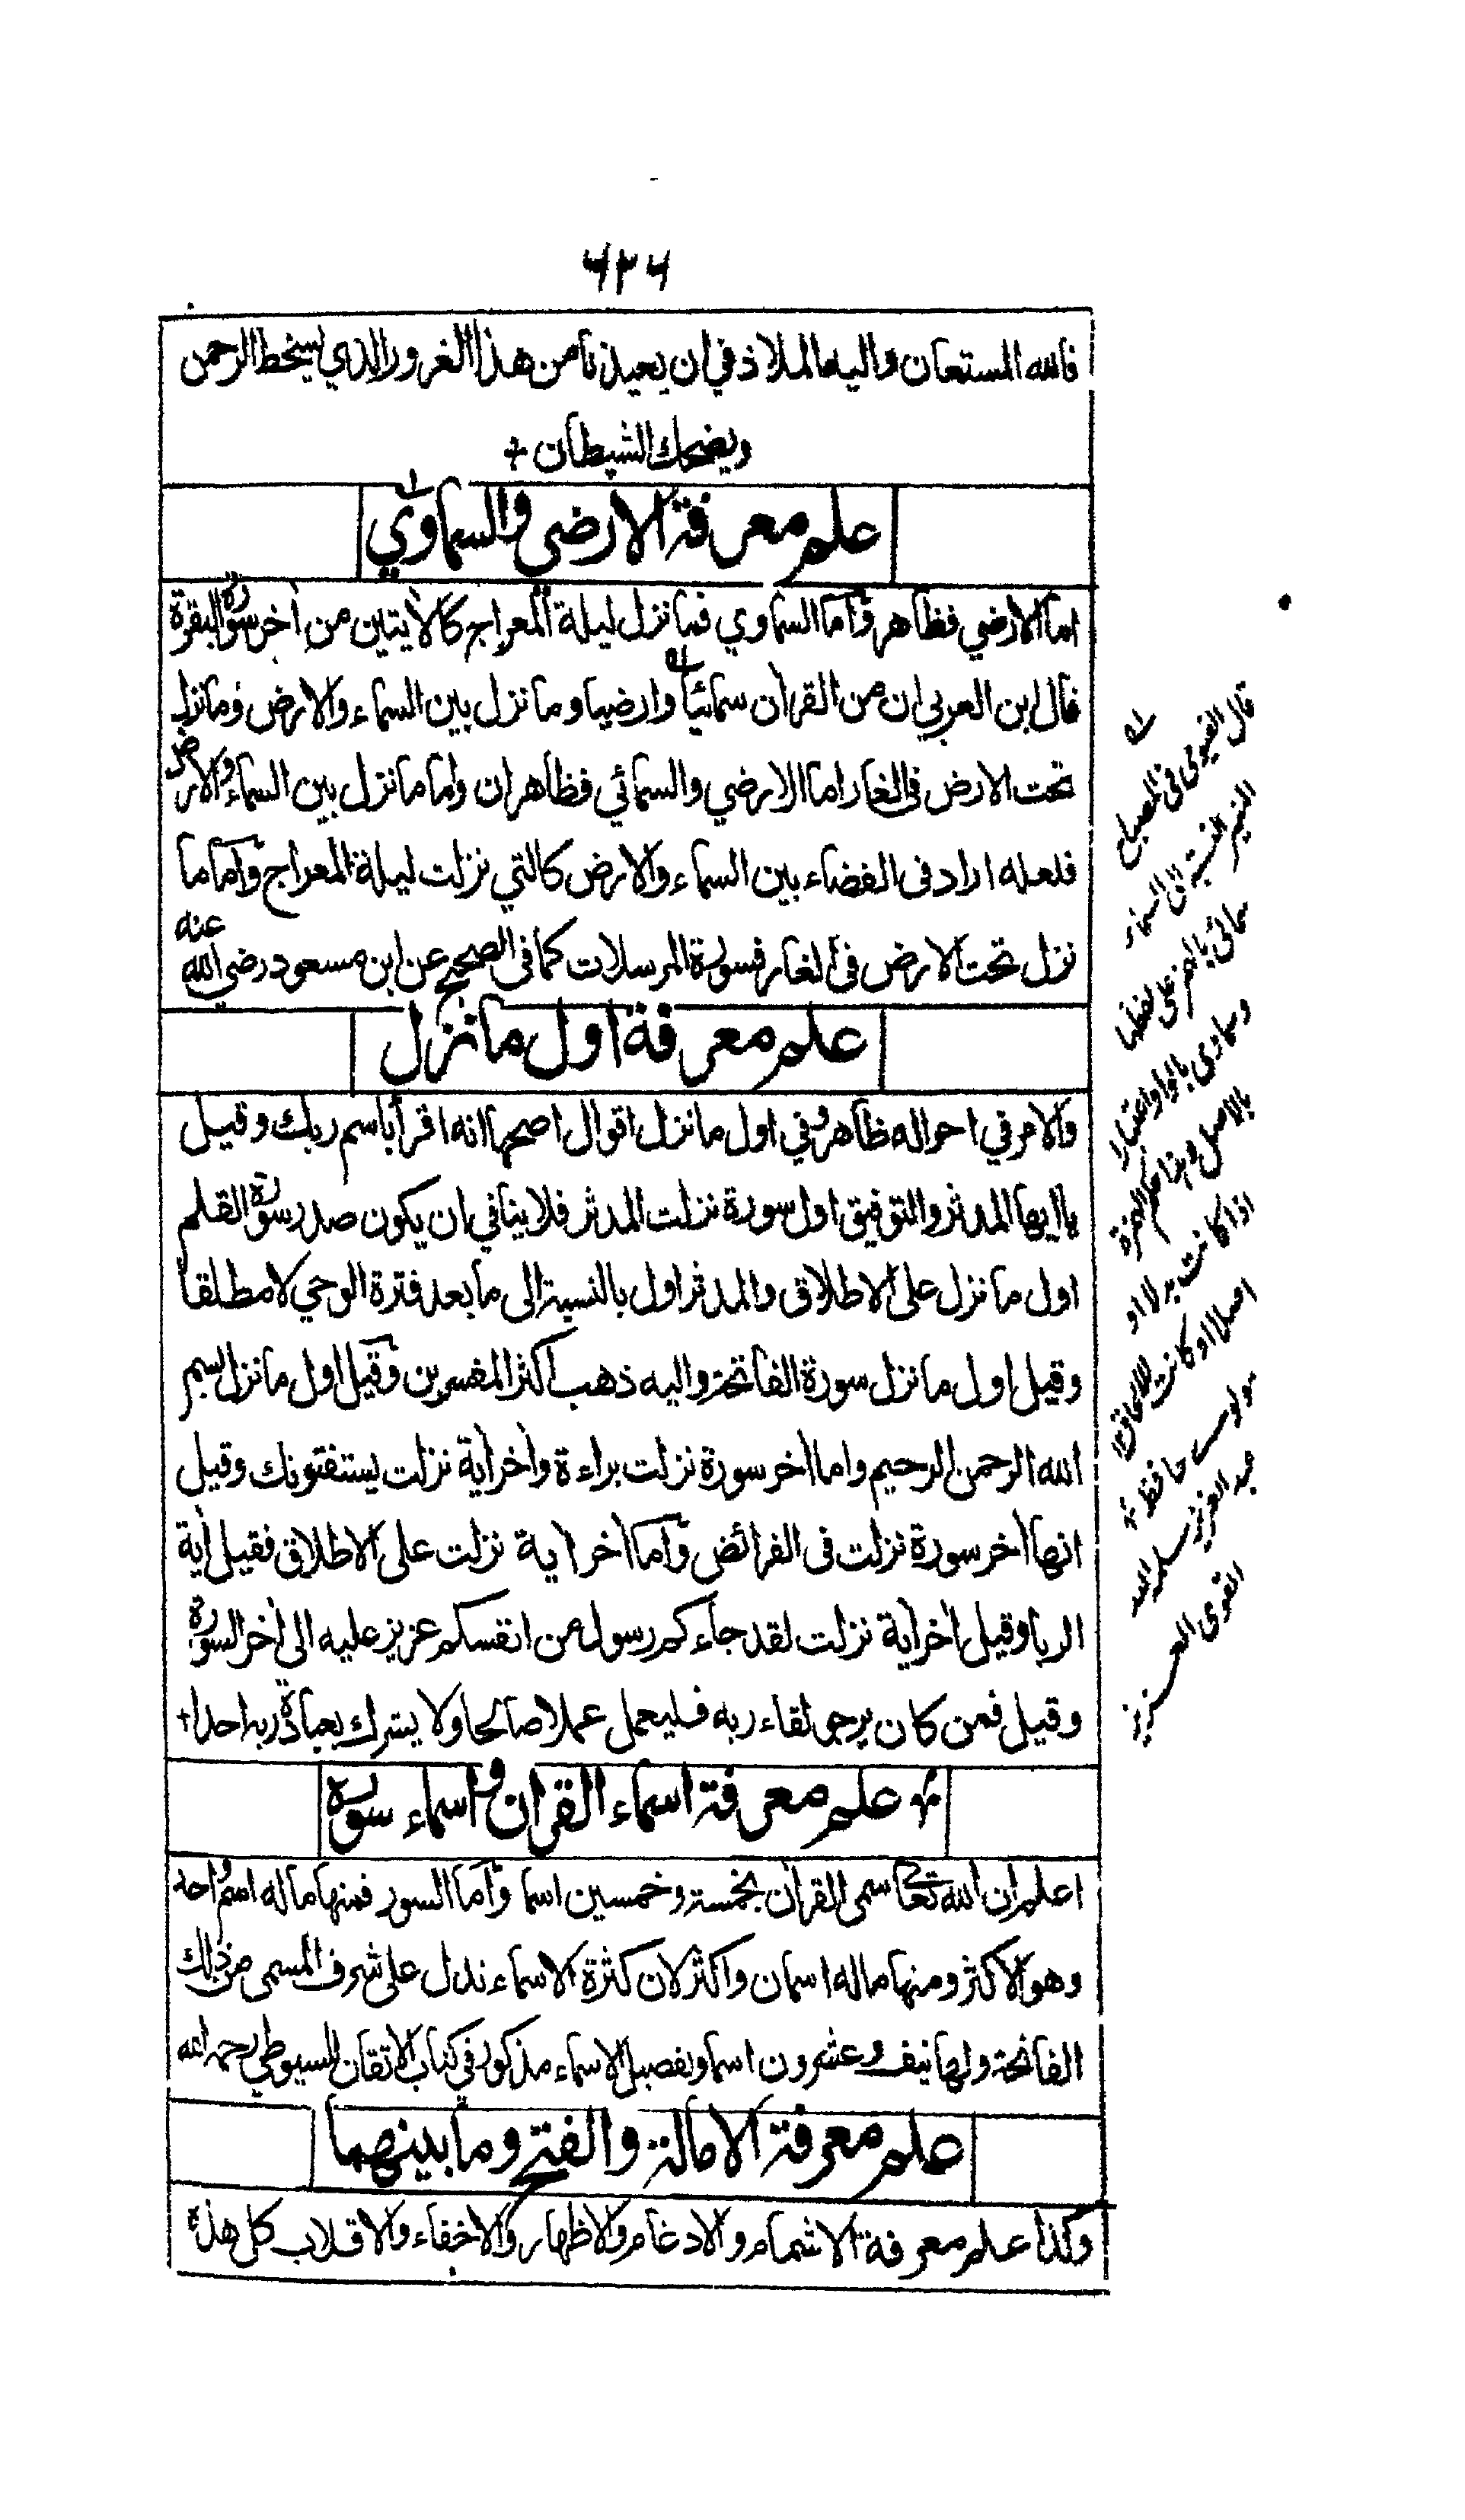 ٦٢٦
فالله المستعان واليه الملاذ في ان يعيذنا من هذا الغرور الذي يسخط الرحمن
ويضحك الشيطان
علم معرفة الارضي والسماوي
اما الارضي فظاهر واما السماوي فما نزل ليلة المعراج كالأيتين من أخر سورة البقرة
قال ابن العربي ان من القرأن سمائيا وارضيا وما نزل بين السماء والارض وما نزل
تحت الارض في الغار اما الارضي والسمائي فظاهران واما ما نزل بين السماء والارض
فلعله اراد في الفضاء بين السماء والارض كالتي نزلت ليلة المعراج واما ما
نزل تحت الارض في الغار فسورة المرسلات كما في الصحيح عن ابن مسعود رضي الله عنه
علم معرفة اول ما نزل
والامر في احواله ظاهر وفي اول ما نزل اقوال اصحها انه اقرأ باسم ربك وقيل
يا ايها المدثر والتوفيق اول سورة نزلت المدثر فلا ينافي ان يكون صدر سورة القلم
اول ما نزل على الاطلاق والمدثر اول بالنسبة الى ما بعد فترة الوحي لا مطلقا
وقيل اول ما نزل سورة الفاتحة واليه ذهب اكثر المفسرين وقيل اول ما نزل بسم
الله الرحمن الرحيم واما أخر سورة نزلت براءة وأخر أية نزلت يستفتونك وقيل
انها أخر سورة نزلت في الفرائض واما أخر اية نزلت على الاطلاق فقيل أية
الربا وقيل أخر أية نزلت لقد جاءكم رسول من انفسكم عزيز عليه الى أخر السورة
وقيل فمن كان يرجو لقاء ربه فليعمل عملا صالحا ولا يشرك بعبادة ربه احدا
علم معرفة اسماء القرأن واسماء سوره
اعلم ان الله تعالى سمى القرأن بخمسة وخمسين اسما واما السور فمنها ماله اسم واحد
وهو الاكثر ومنها ماله اسمان واكثر لان كثرة الاسماء تدل على شرف المسمى من ذلك
الفاتحة ولها نيف وعشرون اسما وتفصيل الاسماء مذكور في كتاب الاتقان للسيوطي رحمه الله
علم معرفة الامالة والفتح وما بينهما
وكذا علم معرفة الاشمام والادغام والاظهار والاخفاء والاقلاب كل هذه
قال الفيومي في المصباح
النسبة الى السماء
سمائي بالهمز على لفظها
وسماوي بالواو اعتبارا
بالاصل وهذا حكم الهمزة
اذا كانت بدلا او
اصلا او كانت للالحاق
مولوي حافظ
عبد العزيز سلمه الله
القوي العزيز